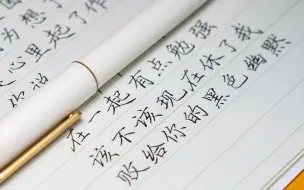 为想了
心里起了作
你
在一起有点勉强
该不该现在休了我
败给你的黑色幽默